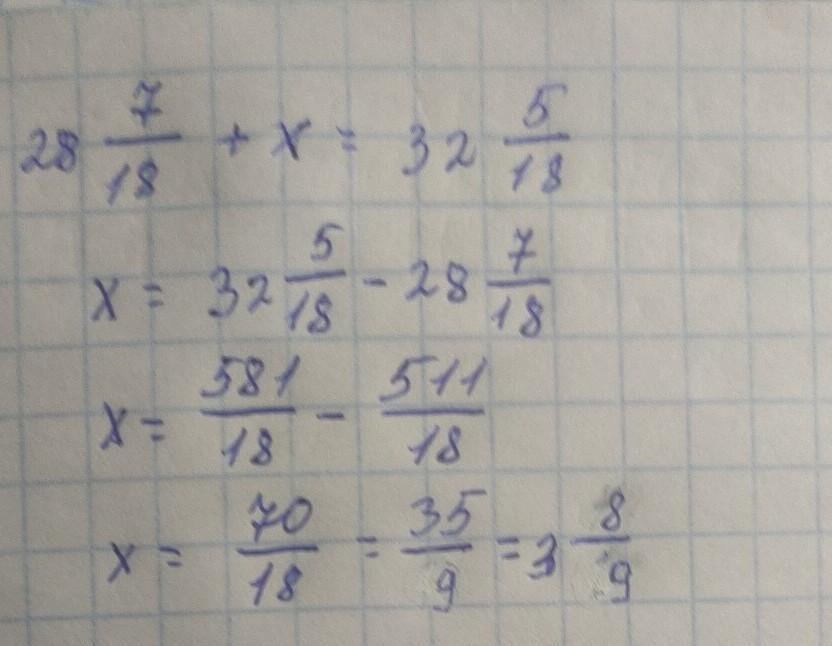 28 7/18 + x = 32 5/18
x = 32 5/18 - 28 7/18
x = 581/18 - 511/18
x = 70/18 = 35/9 = 3 8/9